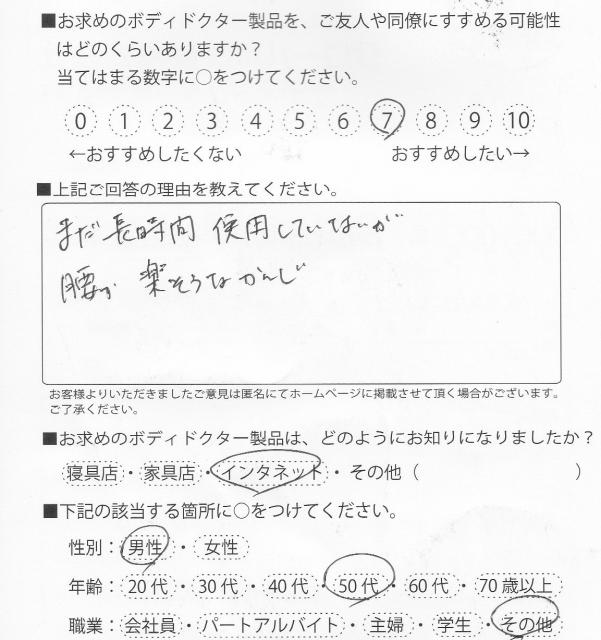 ■お求めのボディドクター製品を、ご友人や同僚にすすめる可能性
はどのくらいありますか？
当てはまる数字に○をつけてください。
0 1 2 3 4 5 6 7 8 9 10
←おすすめしたくない おすすめしたい→
■上記ご回答の理由を教えてください。
まだ長時間 使用していないが
腰が 楽そうなかんじ
お客様よりいただきましたご意見は匿名にてホームページに掲載させて頂く場合がございます。
ご了承ください。
■お求めのボディドクター製品は、どのようにお知りになりましたか？
寝具店・家具店・インタネット・その他（ ）
■下記の該当する箇所に○をつけてください。
性別：男性・女性
年齢：20代・30代・40代・50代・60代・70歳以上
職業：会社員・パートアルバイト・主婦・学生・その他